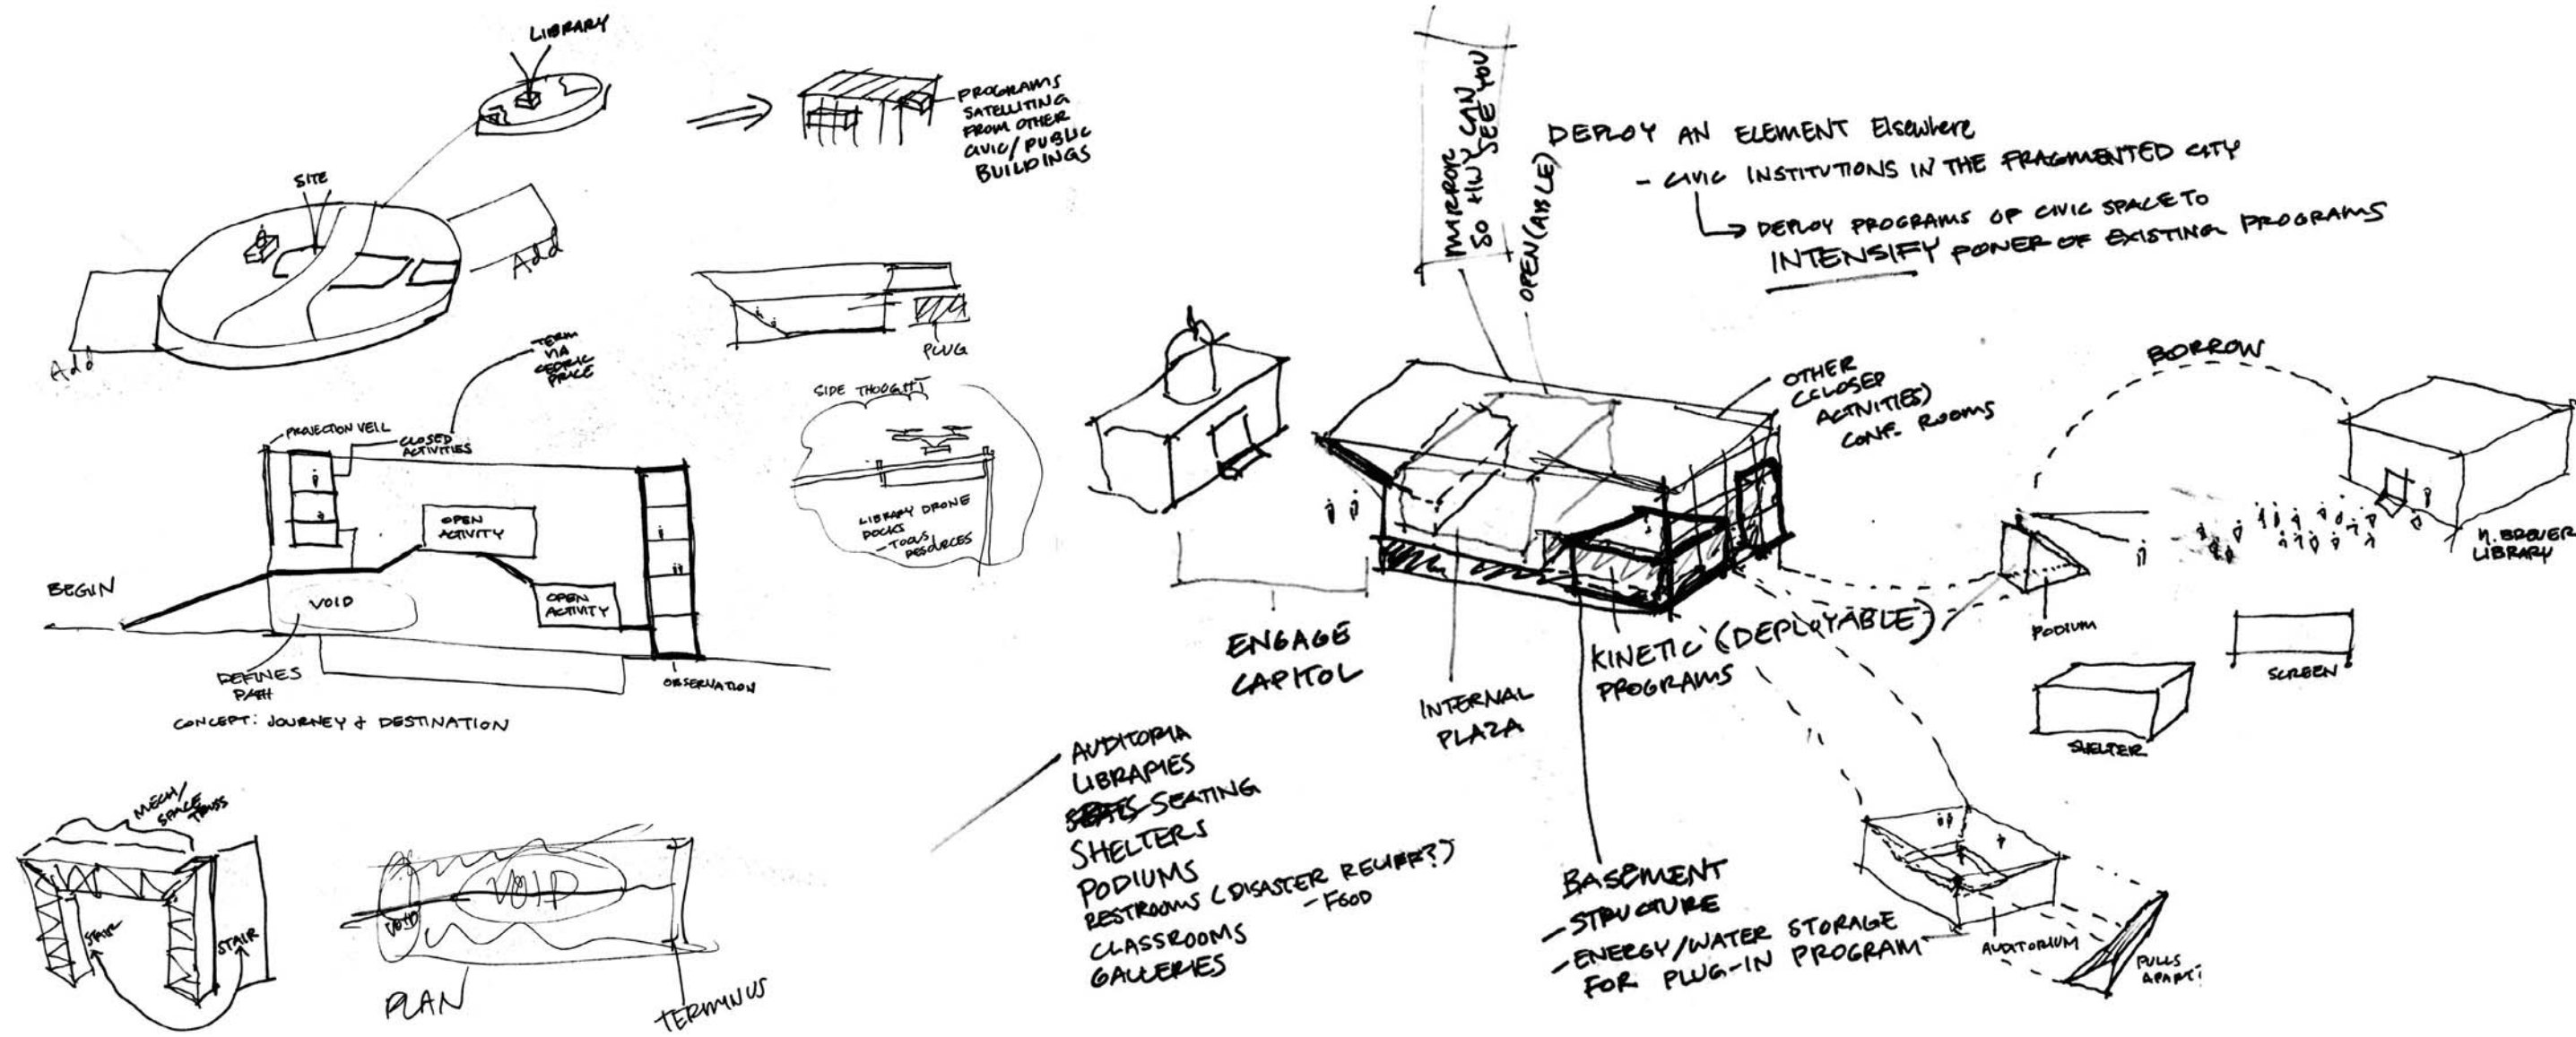 LIBRARY
SITE
Add
Add
PROGRAMS
SATELLITING
FROM OTHER
CIVIC/PUBLIC
BUILDINGS
PLUG
TERM
VIA
CEDRIC
PRICE
PROJECTION VEIL
CLOSED
ACTIVITIES
OPEN
ACTIVITY
OPEN
ACTIVITY
BEGIN
VOID
DEFINES
PATH
OBSERVATION
CONCEPT: JOURNEY & DESTINATION
SIDE THOUGHT
LIBRARY DRONE
DOCKS
- TOOLS
RESOURCES
MECH/
SPACE
TRUSS
STAIR
STAIR
VOID
VOID
PLAN
TERMINUS
MIRROR
SO HWY CAN
SEE YOU
OPEN(ABLE)
DEPLOY AN ELEMENT Elsewhere
- CIVIC INSTITUTIONS IN THE FRAGMENTED CITY
DEPLOY PROGRAMS OF CIVIC SPACE TO
INTENSIFY POWER OF EXISTING PROGRAMS
OTHER
(CLOSED
ACTIVITIES)
CONF. ROOMS
BORROW
M. BREUER
LIBRARY
PODIUM
SCREEN
SHELTER
ENGAGE
CAPITOL
INTERNAL
PLAZA
KINETIC (DEPLOYABLE)
PROGRAMS
AUDITORIA
LIBRARIES
SEATS SEATING
SHELTERS
PODIUMS
RESTROOMS (DISASTER RELIEF?)
- FOOD
CLASSROOMS
GALLERIES
BASEMENT
- STRUCTURE
- ENERGY/WATER STORAGE
FOR PLUG-IN PROGRAM
AUDITORIUM
PULLS
APART!